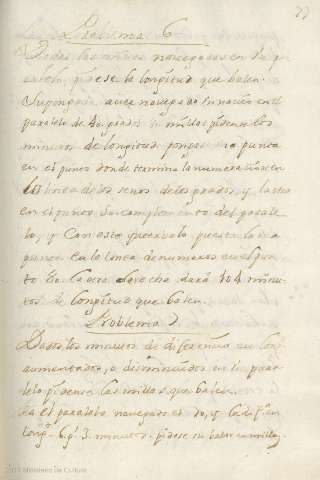 77
Problema 6
Dadas las millas navegadas en un pa
ralelo, pidese la longitud que valen.
Supongase aver navegado un navio en el
paralelo de 40 grados millas pidense los
minutos de longitud pongase una punta
en el punto donde termina la numeracion en
la linea de los senos de los grados, y la otra
en el punto su complemento del parale
lo, y con esta puesta la una
punta en la linea de numeros en el pun
to la otra derecha dara 104 minu
tos de longitud que valen.
Problema 7
Dados los minutos de diferencia en long
aumentados, o disminuidos en un para
lelo pidense las millas que valen.
Sea el paralelo navegado el do, y la dif. en
long. 6 g. 3. minutos. pidese su valor en millas,
2011 Ministerio de Cultura